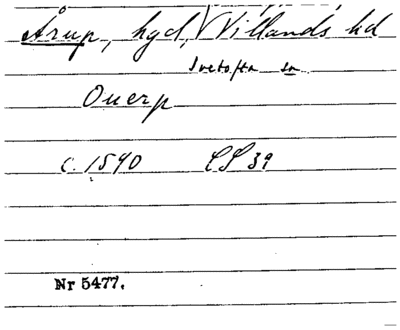 Årup, hgd, Villands hd
Ivetofta sn
Ouerp
c. 1590 CS 39
Nr 5477.